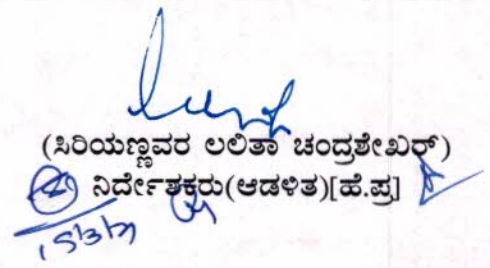 (ಸಿರಿಯಣ್ಣವರ ಲಲಿತಾ ಚಂದ್ರಶೇಖರ್)
ನಿರ್ದೇಶಕರು(ಆಡಳಿತ)[ಹೆ.ಪ್ರ]